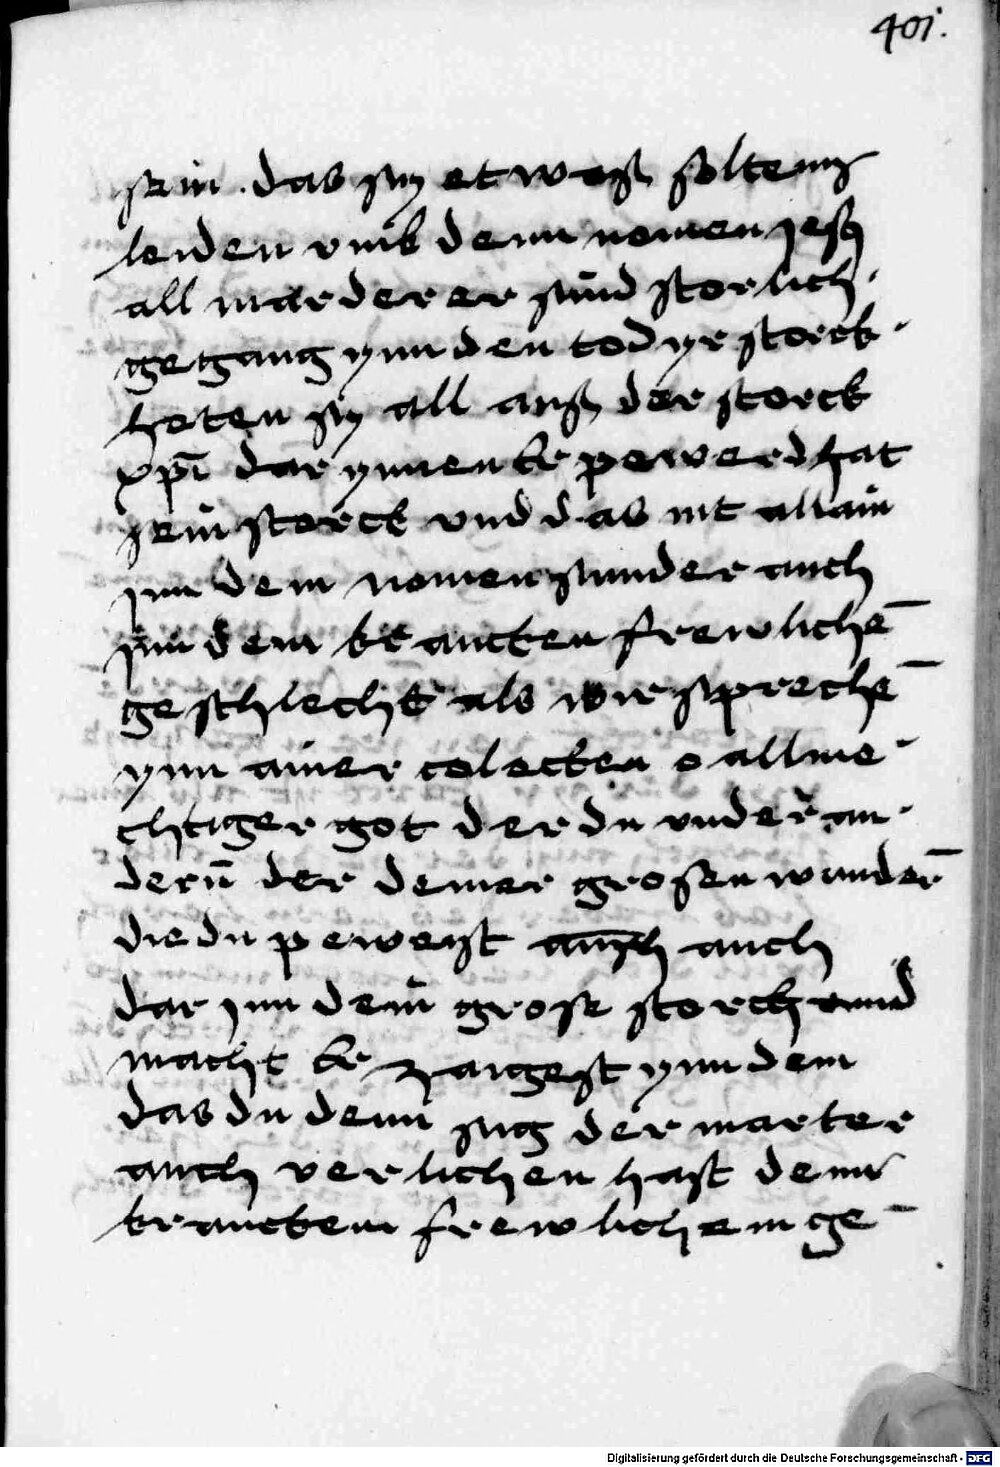 401.
sein . das sy et wasz solten
leiden vmb denn nomen Jesu
all marderer sind storlich
gegang ynn den tod yr storck
heten sy all ausz der storck
xpi dar ynnen er pewerd hat
sein storck vnd das nit allain
jnn dem nomen sunder auch
jnn dem krancken frewlichē
geschlecht als wir sprechē
ynn ainer colecten o allme
chtiger got der du vnder an
derñ der deiner grosen wunderē
die du peweyst auch
dar jnn dein grose storck vnnd
macht er zaigest ynn dem
das du denn sig der marter
auch verlichen hast dem
kranckem frewlichem ge
Digitalisierung gefördert durch die Deutsche Forschungsgemeinschaft - DFG